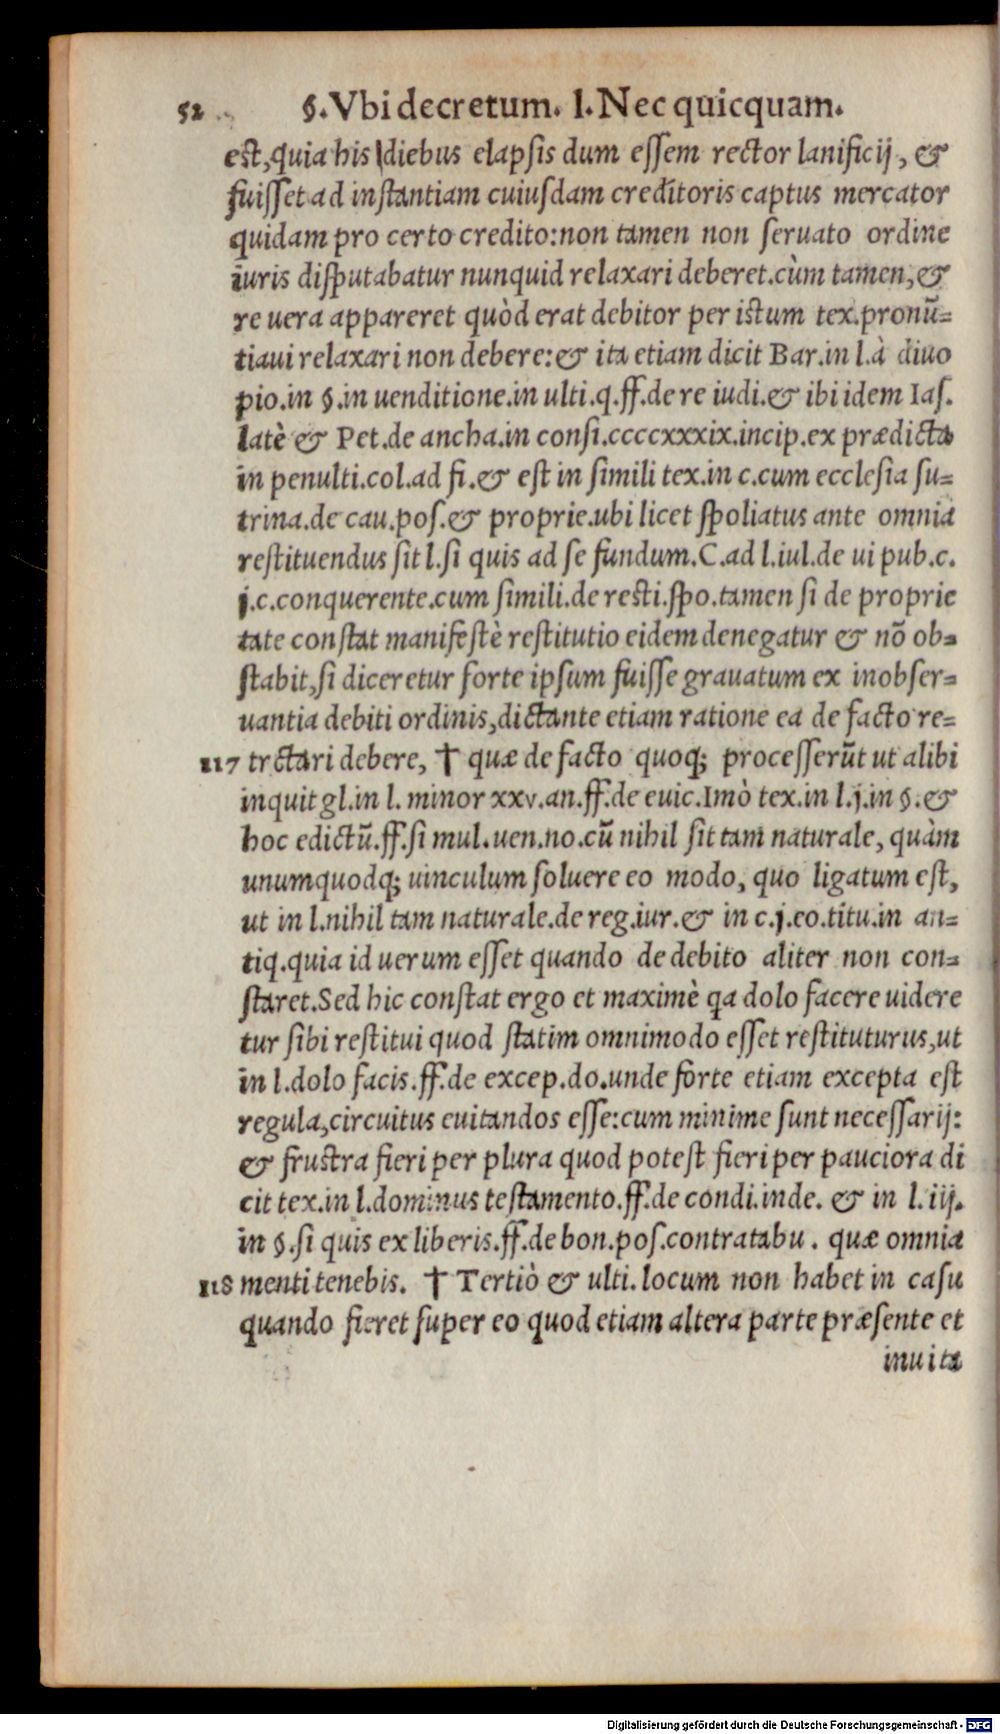 52 §.Vbi decretum. l.Nec quicquam.
est,quia his diebus elapsis dum essem rector lanificij, &
fuisset ad instantiam cuiusdam creditoris captus mercator
quidam pro certo credito:non tamen non seruato ordine
iuris disputabatur nunquid relaxari deberet.cùm tamen,&
re uera appareret quòd erat debitor per istum tex.pronũ=
tiaui relaxari non debere:& ita etiam dicit Bar.in l.à diuo
pio.in §.in uenditione.in ulti.q.ff.de re iudi.& ibi idem Ias.
latè & Pet.de ancha.in consi.ccccxxxix.incip.ex prædicta
in penulti.col.ad fi.& est in simili tex.in c.cum ecclesia su=
trina.de cau.pos.& proprie.ubi licet spoliatus ante omnia
restituendus sit l.si quis ad se fundum.C.ad l.iul.de ui pub.c.
j.c.conquerente.cum simili.de resti.spo.tamen si de proprie
tate constat manifestè restitutio eidem denegatur & nõ ob=
stabit,si diceretur forte ipsum fuisse grauatum ex inobser=
uantia debiti ordinis,dictante etiam ratione ea de facto re=
117 trctari debere, † quæ de facto quoq; processerũt ut alibi
inquit gl.in l. minor xxv.an.ff.de euic.Imò tex.in l.j.in §.&
hoc edictũ.ff.si mul.uen.no.cũ nihil sit tam naturale, quàm
unumquodq; uinculum soluere eo modo, quo ligatum est,
ut in l.nihil tam naturale.de reg.iur.& in c.j.eo.titu.in an=
tiq.quia id uerum esset quando de debito aliter non con=
staret.Sed hic constat ergo et maximè qa dolo facere uidere
tur sibi restitui quod statim omnimodo esset restituturus,ut
in l.dolo facis.ff.de excep.do.unde forte etiam excepta est
regula,circuitus euitandos esse:cum minime sunt necessarij:
& frustra fieri per plura quod potest fieri per pauciora di
cit tex.in l.dominus testamento.ff.de condi.inde. & in l.iij.
in §.si quis ex liberis.ff.de bon.pos.contratabu. quæ omnia
118 menti tenebis. † Tertiò & ulti.locum non habet in casu
quando fieret super eo quod etiam altera parte præsente et
inuita
Digitalisierung gefördert durch die Deutsche Forschungsgemeinschaft - DFG